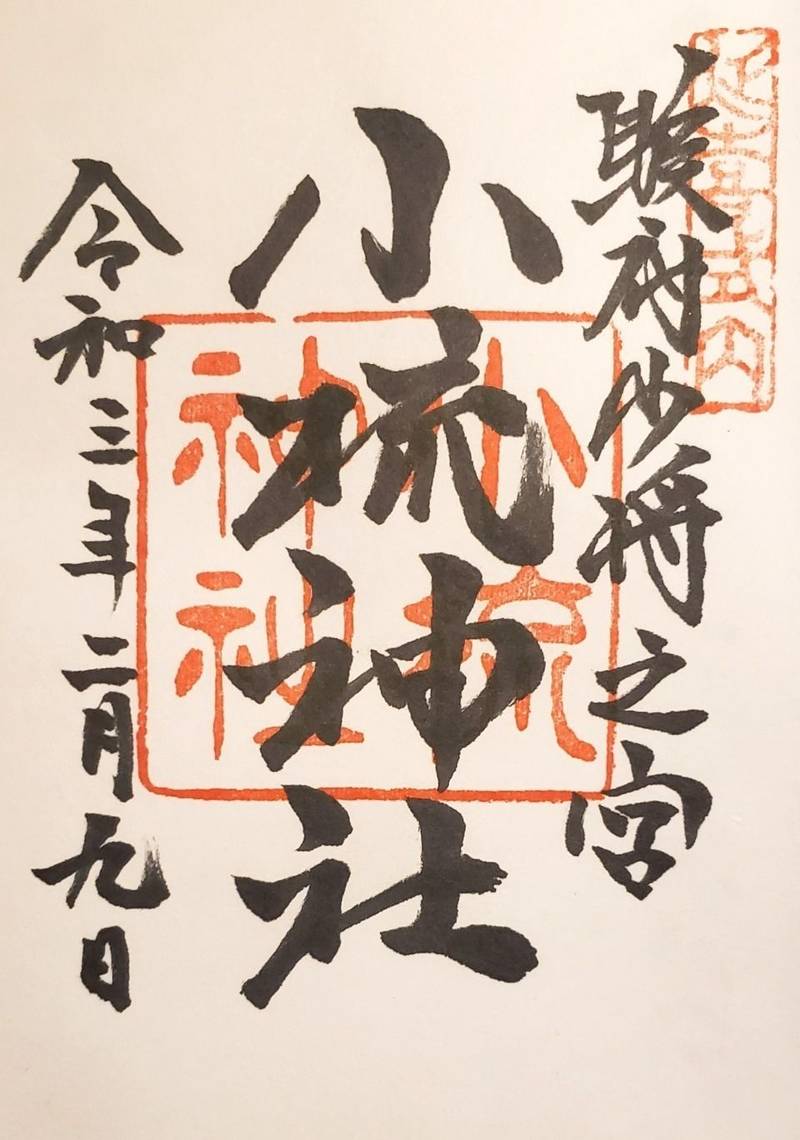 延喜式内
駿府少将之宮
小梳神社
小梳
神社
令和三年二月九日